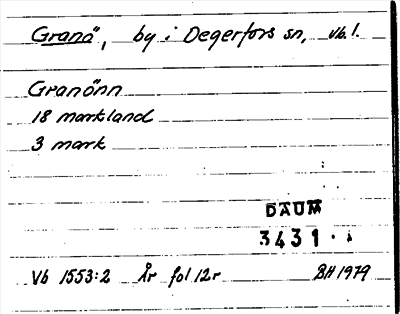 Granö, by i Degerfors sn, Vb.l.
Granönn
18 markland
3 mark
DAUM
3431.1
Vb 1553:2 År fol 12r BH 1979